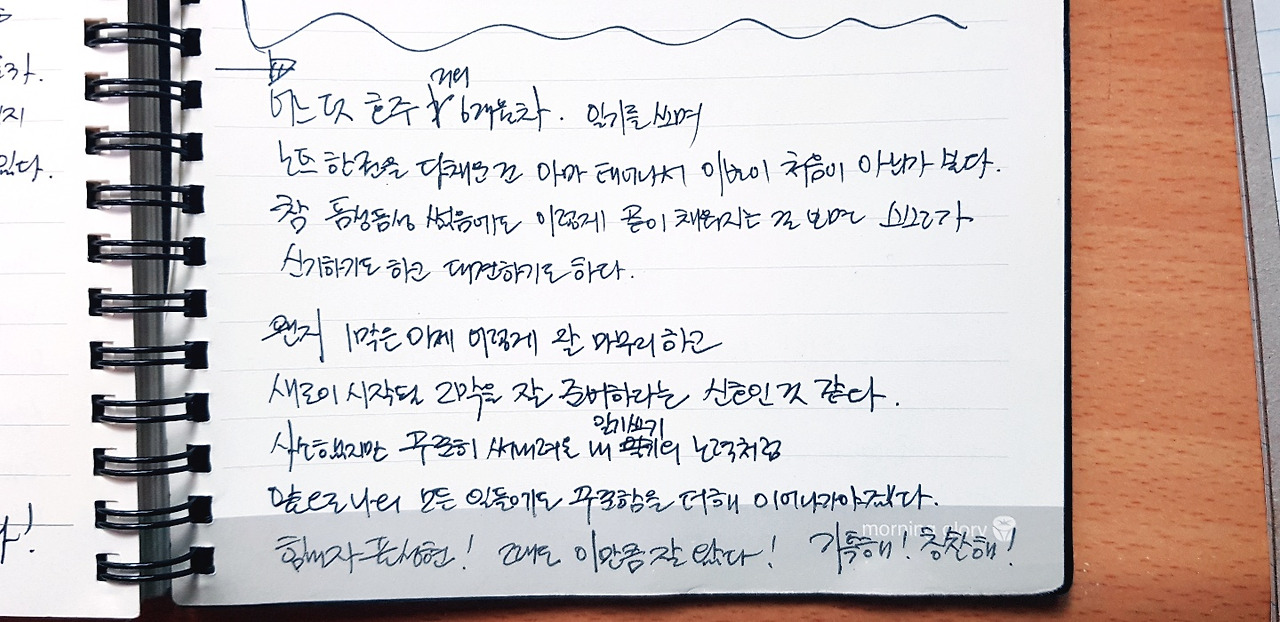 라.
지
있다.
!
거의
어느덧 호주 6개월차. 일기를 쓰며
노트 한권을 다채운 건 아마 태어나서 이번이 처음이 아닌가 보다.
참 듬성듬성 썼음에도 이렇게 끝이 채워지는 걸 보면 스스로가
신기하기도 하고 대견하기도 하다.
왠지 1막은 이제 이렇게 잘 마무리하고
새로이 시작될 2막을 잘 준비하라는 신호인 것 같다.
일기쓰기
사소했지만 꾸준히 써내려온 내 노력처럼
앞으로 나의 모든 일들에도 꾸준함을 더해 이어나가야겠다.
morning glory
힘내자 ! 그래도 이만큼 잘 왔다! 기특해! 칭찬해!